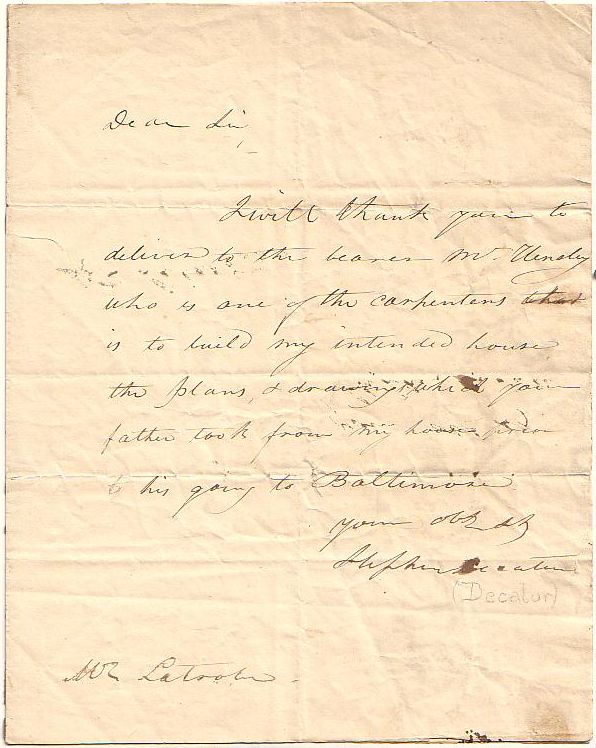 Dear Sir,
I will thank you to
deliver to the bearer Mr.
who is one of the carpenters that
is to build my intended house
the plans, & drawings which your
father took from my house prior
to his going to Baltimore
your obt st
Stephen Decatur
(Decatur)
Mr Latrobe